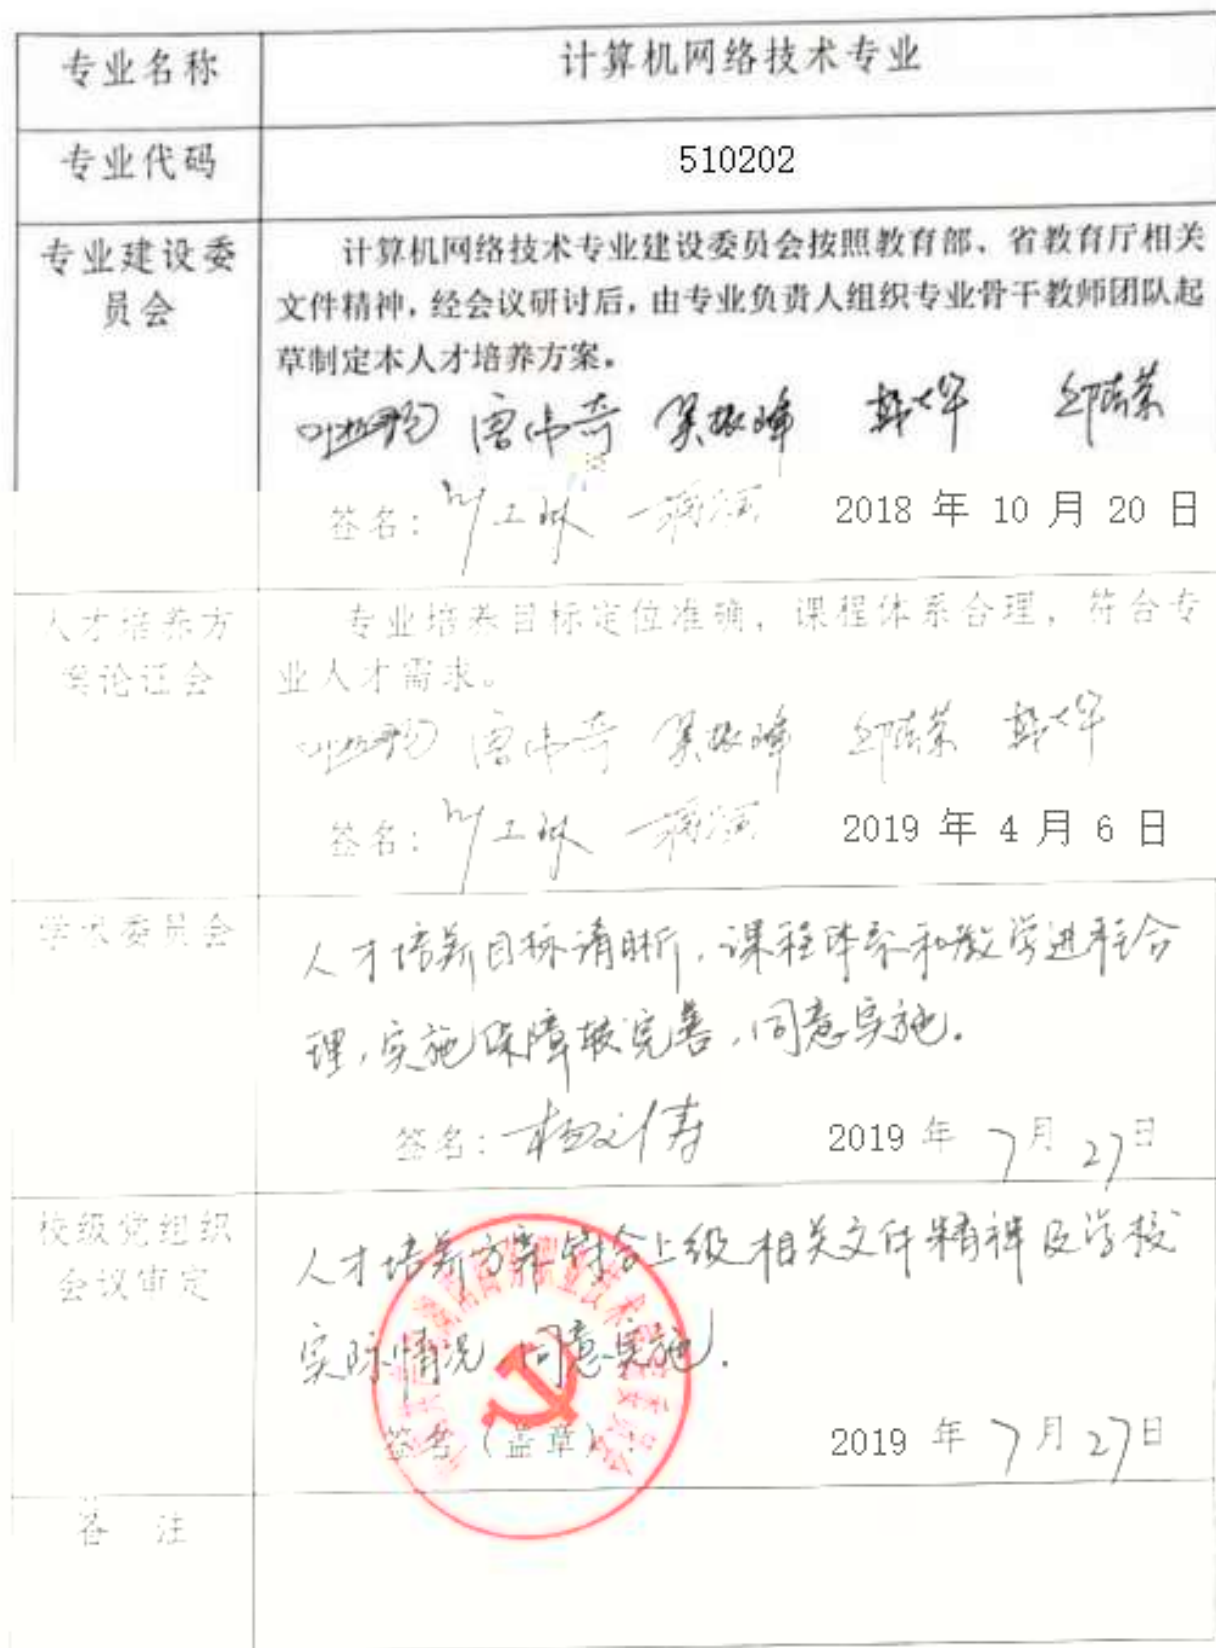 专业名称
计算机网络技术专业
专业代码
510202
专业建设委
员会
计算机网络技术专业建设委员会按照教育部、省教育厅相关
文件精神,经会议研讨后,由专业负责人组织专业骨干教师团队起
草制定本人才培养方案。
吴振峰
签名: 2018 年 10 月 20 日
人才培养方
案论证会
专业培养目标定位准确,课程体系合理,符合专
业人才需求。
吴振峰
签名: 2019 年 4 月 6 日
学术委员会
人才培养目标清晰,课程体系和教学进程合
理,实施保障较完善,同意实施.
签名: 2019 年 7 月 27 日
校级党组织
会议审定
人才培养方案符合上级相关文件精神及学校
实际情况,同意实施.
签名(盖章): 2019 年 7 月 27 日
备 注